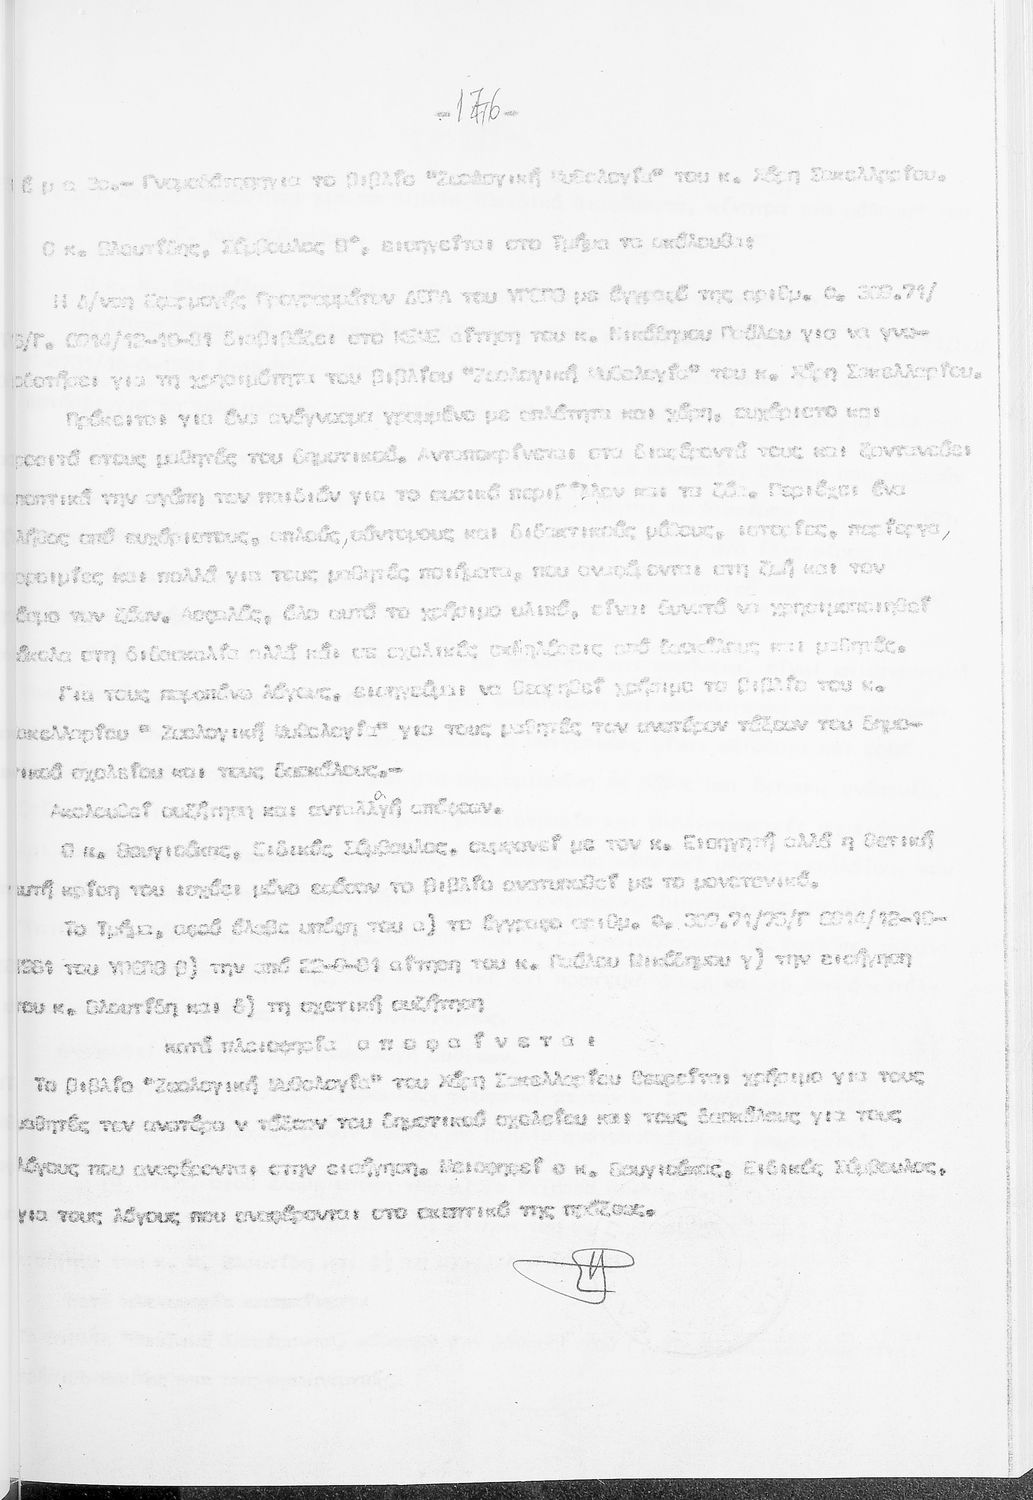 -176-
θ έ μ α 3ο.- Γνωμοδότηση για το βιβλίο "Ζωολογική Μυθολογία" του κ. Χάρη Σακελλαρίου.
Ο κ. Βλουτίδης, Σύμβουλος Β', εισηγείται στο Τμήμα τα ακόλουθα:
Η Δ/νση Εφαρμογής Προγραμμάτων ΔΕΠΑ του ΥΠΕΠΘ με έγγραφό της αριθμ. Φ.
διαβιβάζει στο ΚΕΜΕ αίτηση του κ. Νικόδημου Παύλου για να γνω-
μοδοτήσει για τη χρησιμότητα του βιβλίου "Ζωολογική Μυθολογία" του κ. Χάρη Σακελλαρίου.
Πρόκειται για ένα ανάγνωσμα γραμμένο με απλότητα και χάρη, ευχάριστο και
προσιτό στους μαθητές του δημοτικού. Ανταποκρίνεται στα διαφέροντά τους και ζωντανεύει
την αγάπη των παιδιών για το φυσικό περιβάλλον και τα ζώα. Περιέχει ένα
πλήθος από ευχάριστους, απλούς, σύντομους και διδακτικούς μύθους, ιστορίες, περίεργα,
παροιμίες και πολλά για τους μαθητές ποιήματα, που αναφέρονται στη ζωή και τον
κόσμο των ζώων. Ασφαλώς, όλο αυτό το χρήσιμο υλικό, είναι δυνατό να χρησιμοποιηθεί
εύκολα στη διδασκαλία αλλά και σε σχολικές εκδηλώσεις από δασκάλους και μαθητές.
Για τους παραπάνω λόγους, εισηγούμαι να θεωρηθεί χρήσιμο το βιβλίο του κ.
Σακελλαρίου " Ζωολογική Μυθολογία" για τους μαθητές των ανωτέρων τάξεων του δημο-
τικού σχολείου και τους δασκάλους.-
Ακολουθεί συζήτηση και ανταλλαγή απόψεων.
Ο κ. Βουγιούκας, Ειδικός Σύμβουλος, συμφωνεί με τον κ. Εισηγητή αλλά η θετική
αυτή κρίση του ισχύει μόνο εφόσον το βιβλίο ανατυπωθεί με το μονοτονικό.
Το Τμήμα, αφού έλαβε υπόψη του α) το έγγραφο αριθμ. Φ.
1981 του ΥΠΕΠΘ β) την από αίτηση του κ. Παύλου Νικόδημου γ) την εισήγηση
του κ. Βλουτίδη και δ) τη σχετική συζήτηση
κατά πλειοψηφία α π ο φ α ί ν ε τ α ι
Το βιβλίο "Ζωολογική Μυθολογία" του Χάρη Σακελλαρίου θεωρείται χρήσιμο για τους
μαθητές των ανωτέρω ν τάξεων του δημοτικού σχολείου και τους δασκάλους για τους
λόγους που αναφέρονται στην εισήγηση. Μειοψηφεί ο κ. Βουγιούκας, Ειδικός Σύμβουλος,
για τους λόγους που αναφέρονται στο σκεπτικό της πράξεως.